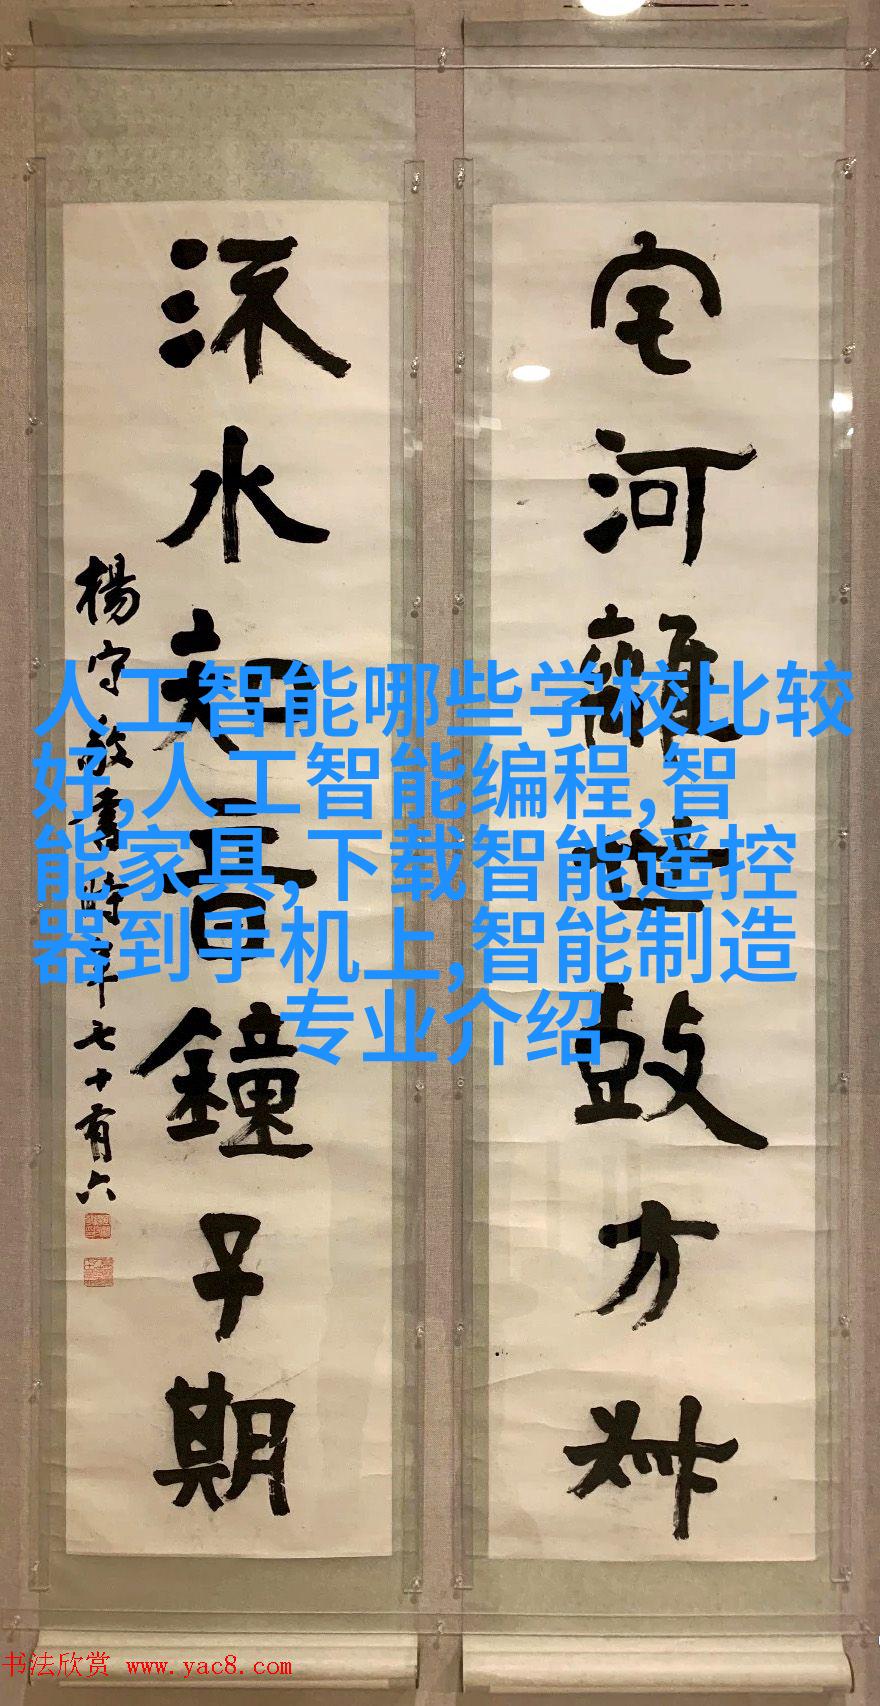 宅河離世鼓方叔
流水知音鐘子期
楊守敬書時年七十有六
人工智能哪些学校比较
好,人工智能编程,智
能家具,下载智能遥控
器到手机上,智能制造
专业介绍
书法欣赏 www.yac8.com